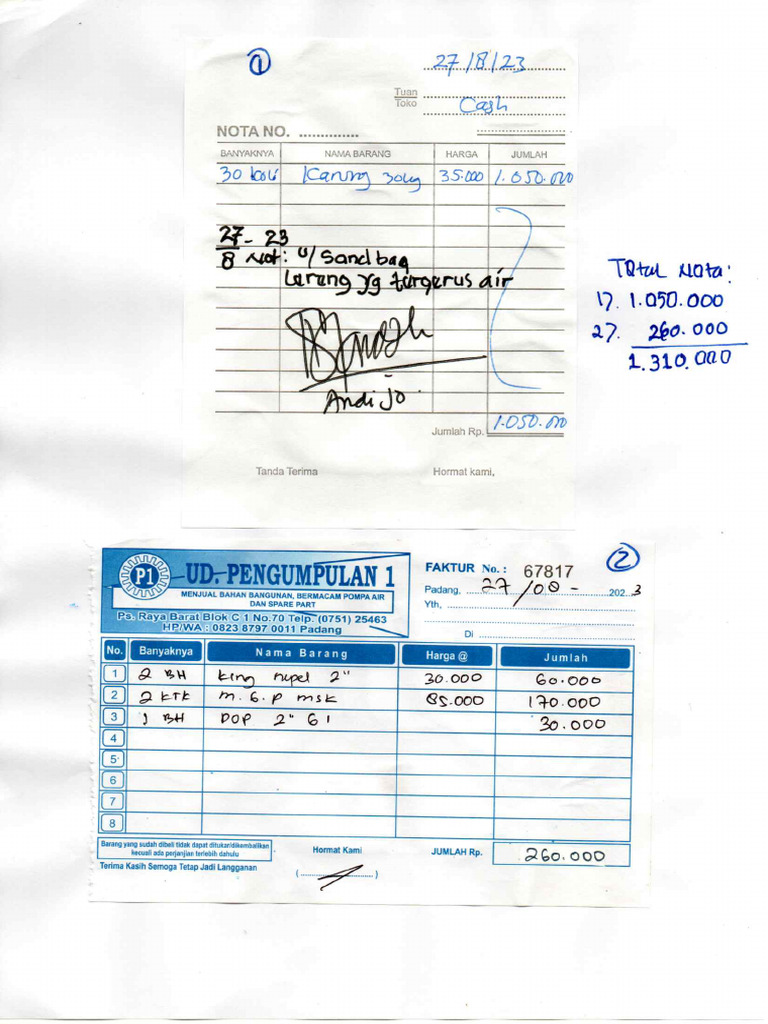 1
27/8/23
Tuan
Toko Cash
NOTA NO. ..............
BANYAKNYA NAMA BARANG HARGA JUMLAH
30 Karung 30kg 35.000 1.050.000
27 - 23
8 Not: u/ Sand bag
Lereng yg tergerus air
Andi jo
Jumlah Rp. 1.050.000
Tanda Terima Hormat kami,
Total Nota:
1). 1.050.000
2). 260.000
1.310.000
2
P1 UD. PENGUMPULAN 1
MENJUAL BAHAN BANGUNAN, BERMACAM POMPA AIR
DAN SPARE PART
Ps. Raya Barat Blok C 1 No.70 Telp. (0751) 25463
HP/WA : 0823 8797 0011 Padang
FAKTUR No. : 67817
Padang, 27/08 - 2023
Yth,
Di
No. Banyaknya Nama Barang Harga @ Jumlah
1 2 BH king nipel 2" 30.000 60.000
2 2 KTK m. G. P msk 85.000 170.000
3 1 BH DOP 2" GI 30.000
4
5
6
7
8
Barang yang sudah dibeli tidak dapat ditukar/dikembalikan
kecuali ada perjanjian terlebih dahulu
Terima Kasih Semoga Tetap Jadi Langganan
Hormat Kami
(........................)
JUMLAH Rp. 260.000